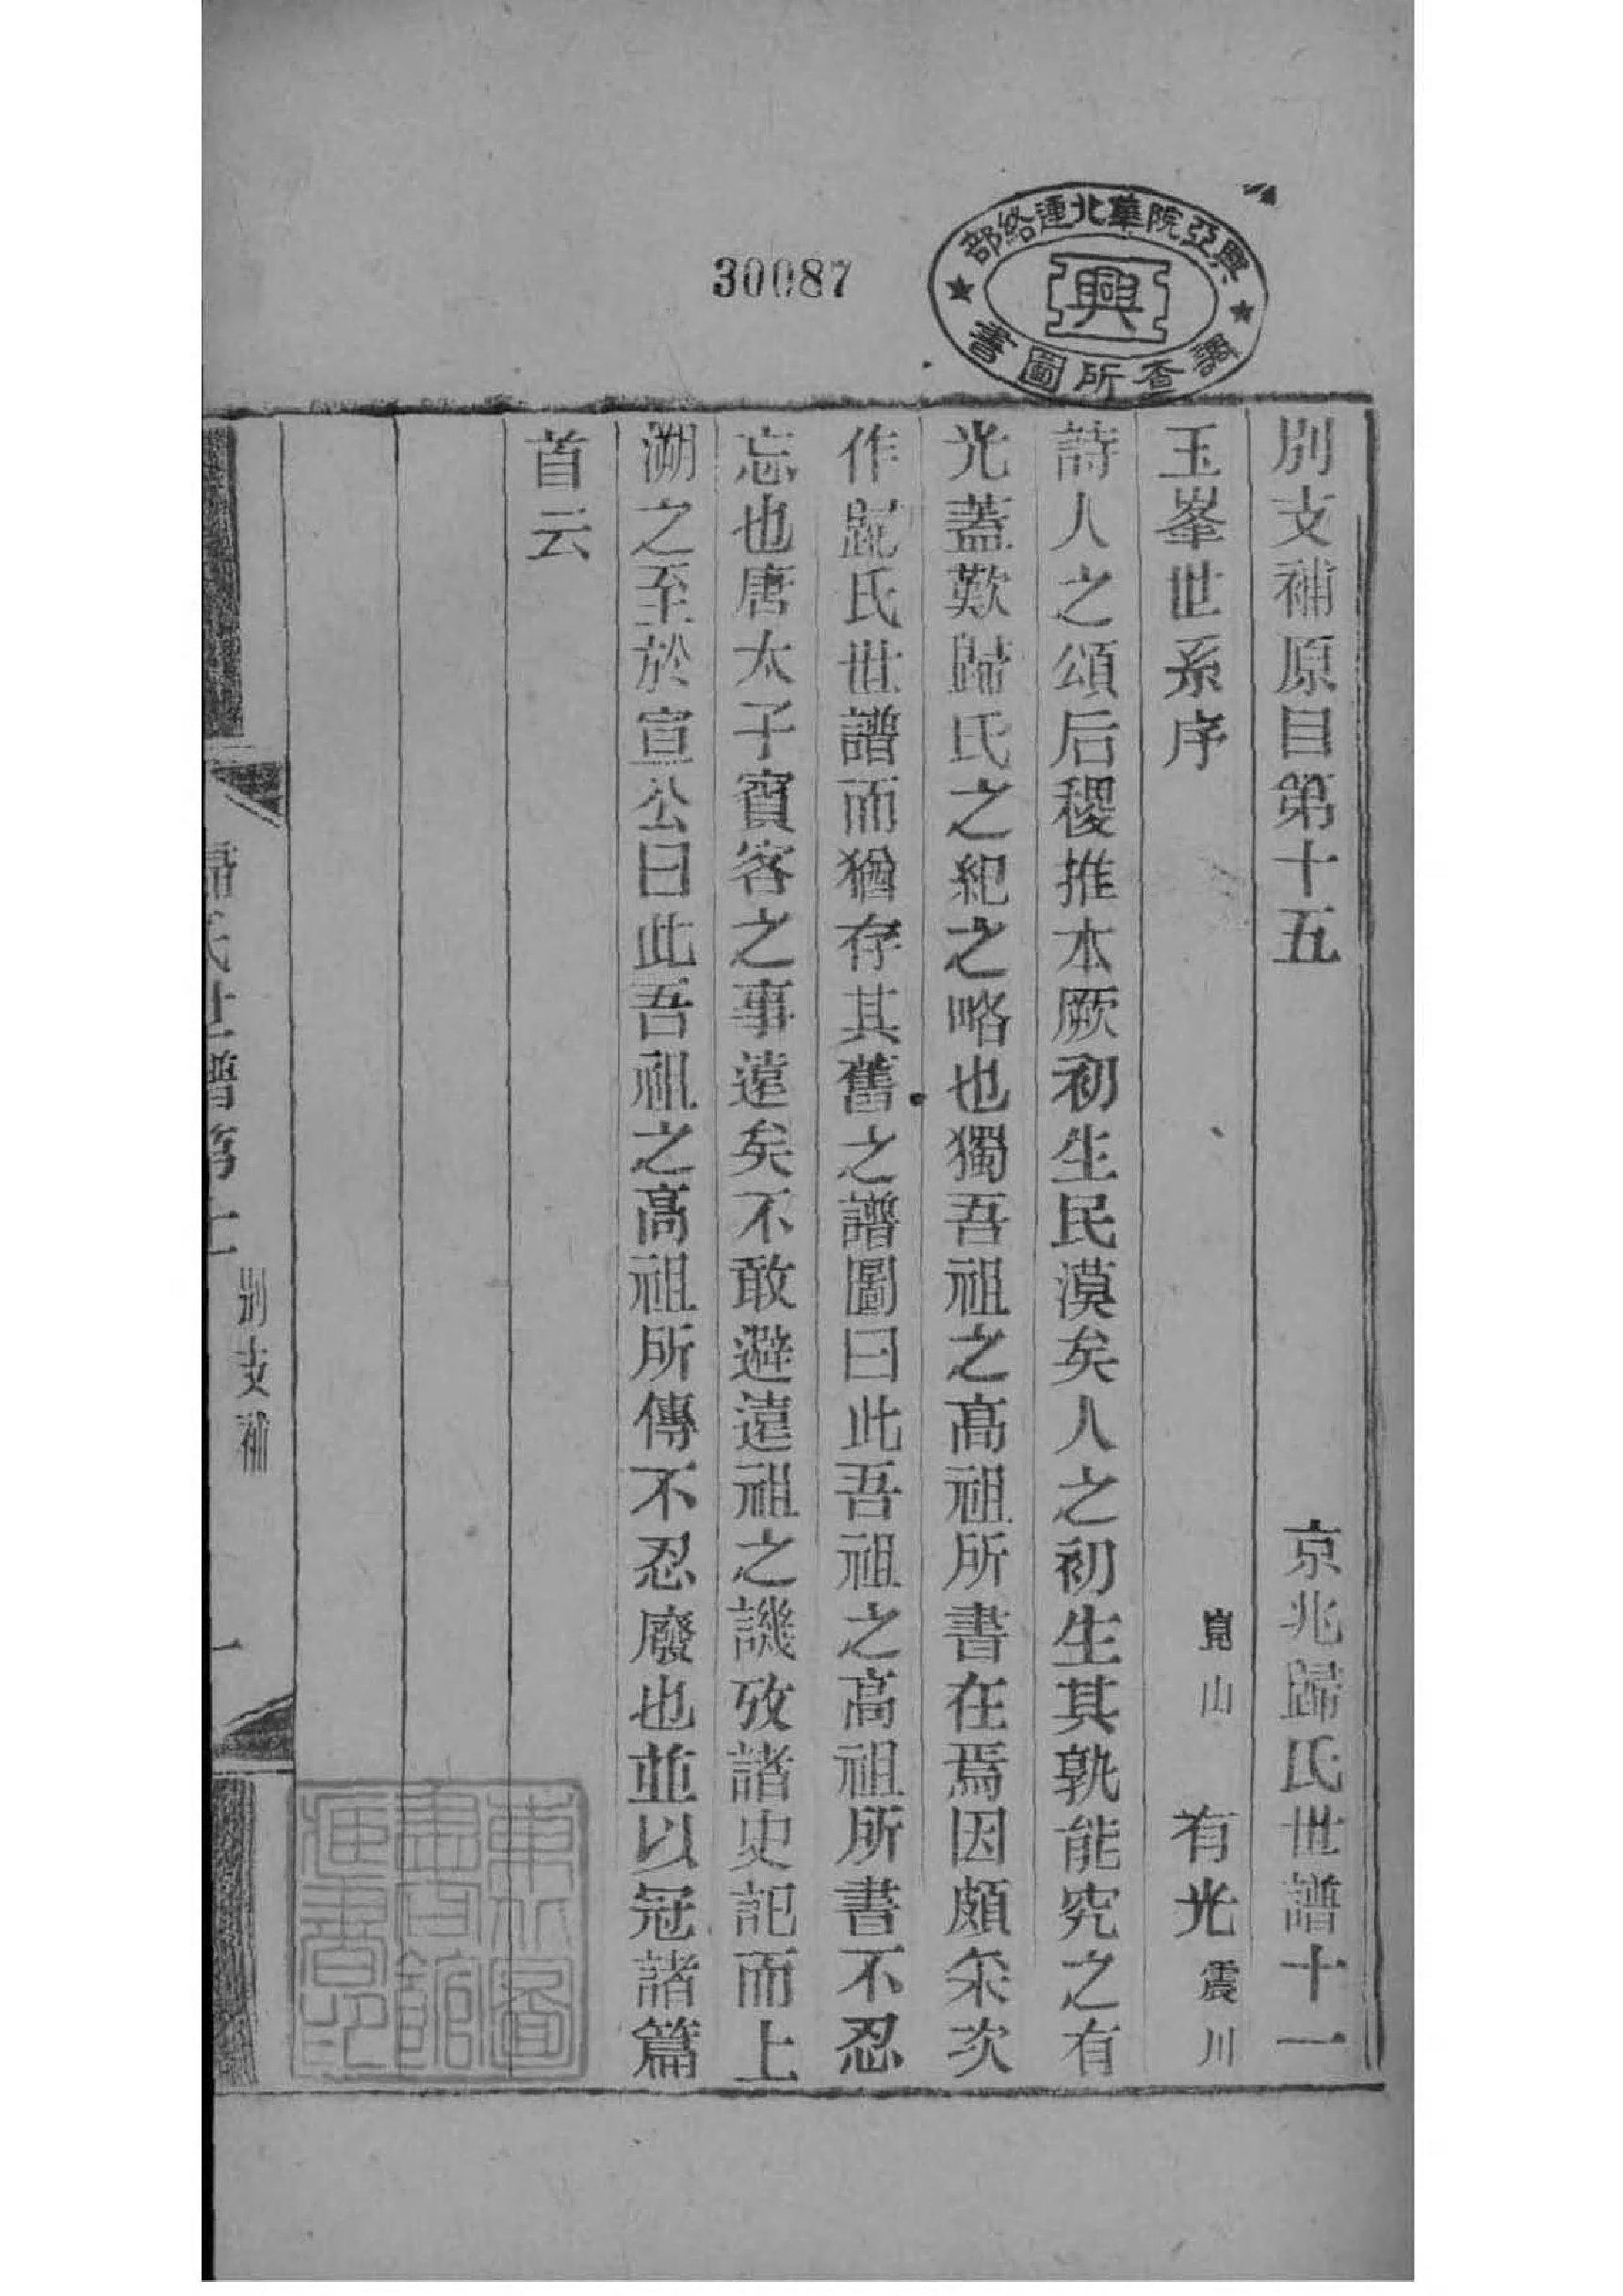 興亞院華北連絡部
調查所圖書
興
30087
別支補原目第十五 京兆歸氏世譜十一
玉峯世系序 崑山 有光 震川
詩人之頌后稷推本厥初生民漠矣人之初生其孰能究之有
光蓋歎歸氏之紀之略也獨吾祖之高祖所書在焉因頗采次
作歸氏世譜而猶存其舊之譜圖曰此吾祖之高祖所書不忍
忘也唐太子賓客之事遠矣不敢避遠祖之譏攷諸史記而上
溯之至於宣公曰此吾祖之高祖所傳不忍廢也並以冠諸篇
首云
歸氏世譜第十一 別支補 一
東方圖書館在書印